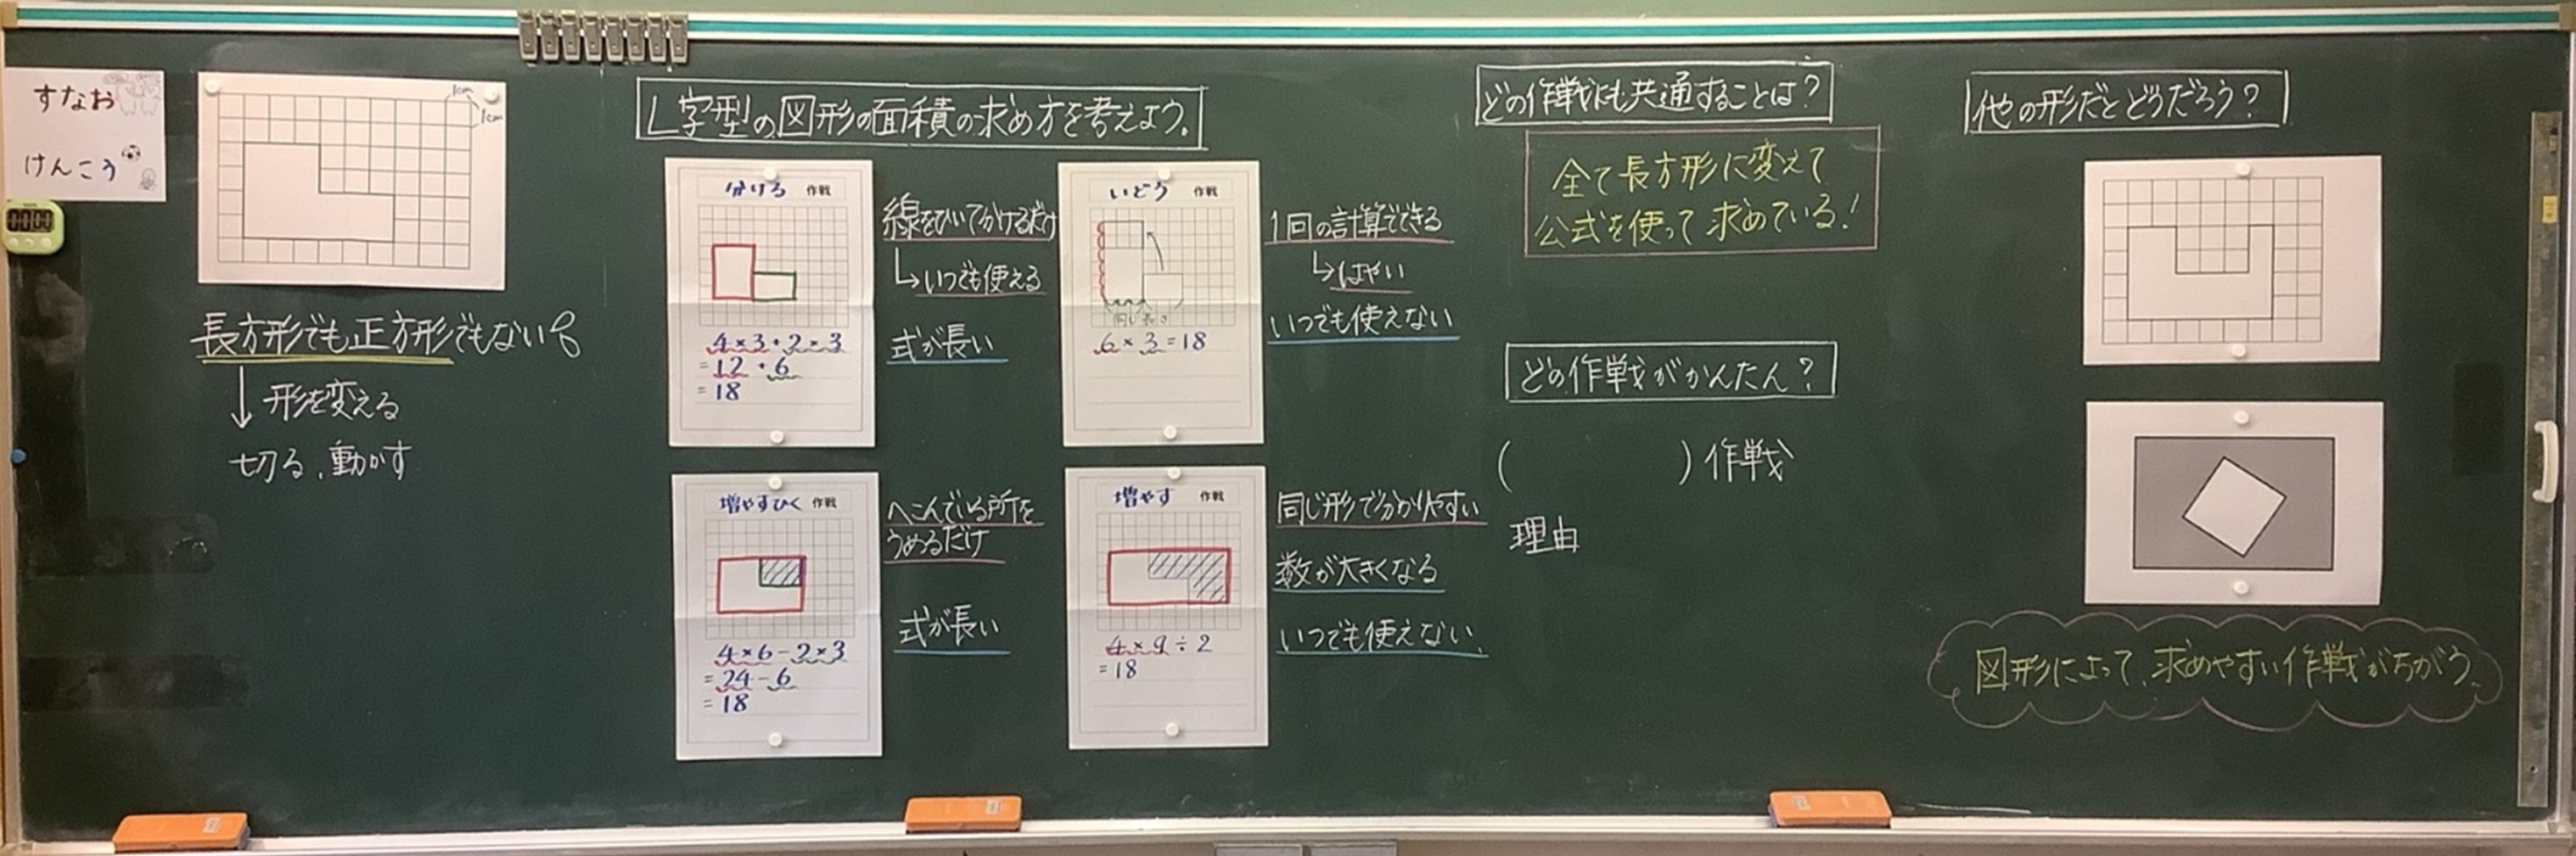 すなお
けんこう
1cm
1cm
長方形でも正方形でもない
形を変える
切る、動かす
L字型の図形の面積の求め方を考えよう。
分ける 作戦
4×3+2×3
=12+6
=18
線をひいてかけるだけ
いつでも使える
式が長い
いどう 作戦
同じ長さ
6×3=18
1回の計算でできる
はやい
いつでも使えない
増やすひく 作戦
4×6-2×3
=24-6
=18
へこんでいる所を
うめるだけ
式が長い
増やす 作戦
4×9÷2
=18
同じ形で分かりやすい
数が大きくなる
いつでも使えない
どの作戦にも共通することは?
全て長方形に変えて
公式を使って求めている!
どの作戦がかんたん?
( )作戦
理由
他の形だとどうだろう?
図形によって、求めやすい作戦がちがう